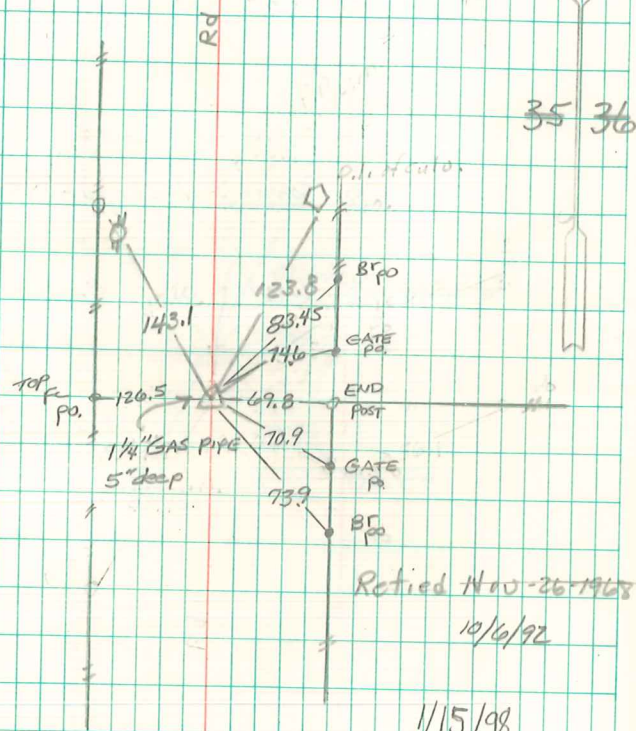 Rd
35 36
123.8
Br po
83.45
143.1
74.6
GATE po.
TOP Fc po.
126.5
69.8
END POST
1 1/4" GAS PIPE
5" deep
70.9
GATE po.
73.9
Br po
Retied Nov-26-1968
10/6/92
1/15/98